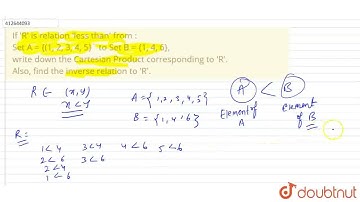 412644093
If 'R' is relation 'less than' from :
Set A = {(1, 2, 3, 4, 5} to Set B = {1, 4, 6},
write down the Cartesian Product corresponding to 'R'.
Also, find the inverse relation to 'R'.
R ∈ (x,y)
x < y
A = {1,2,3,4,5}
B = {1,4,6}
A < B
Element of A
element of B
R =
1<4 3<4 4<6 5<6
2<6 3<6
2<4
1<6
doubtnut